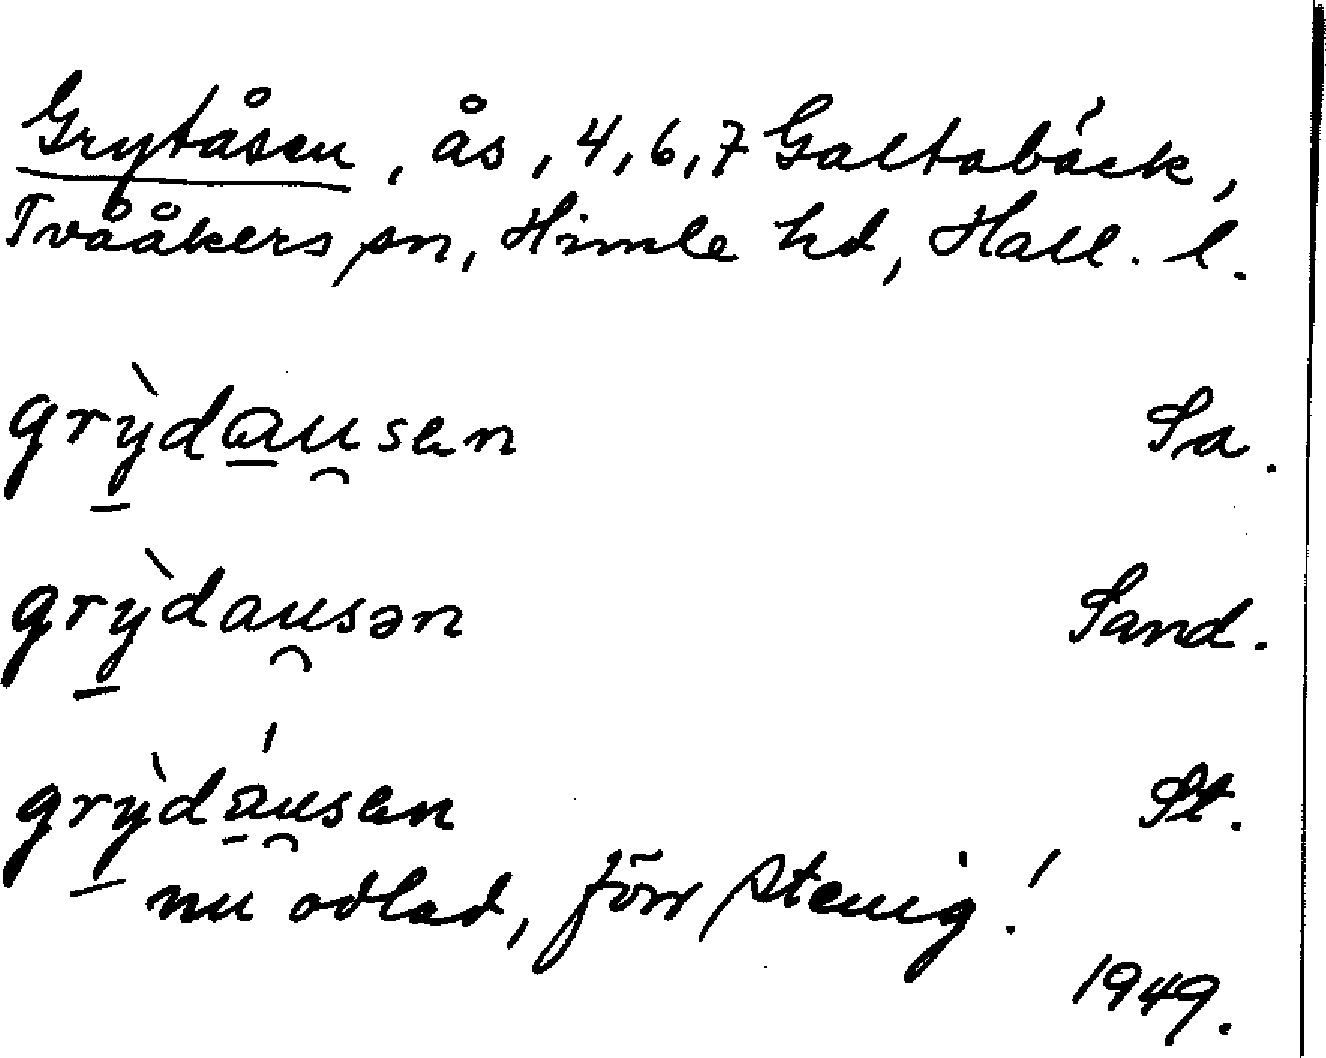 Grytåsen, ås, 4, 6, 7 Galtabäck,
Tvååkers sn, Himle hd, Hall. l.
grỳda̲u̯sen Sa.
grỳdau̯sən Sand.
grỳdáu̯sen St.
nu odlad, förr stenig!
1949.